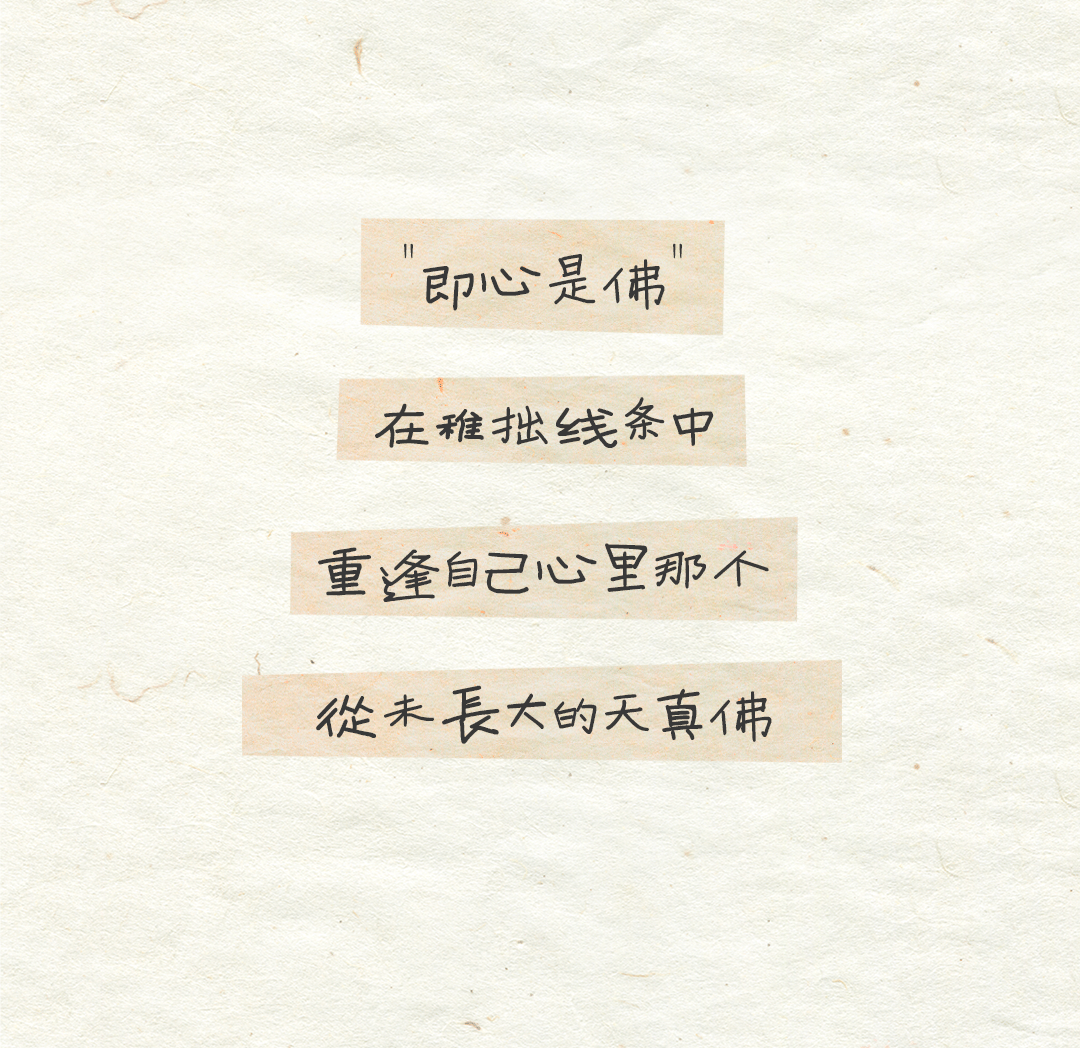 "即心是佛"
在稚拙线条中
重逢自己心里那个
從未長大的天真佛